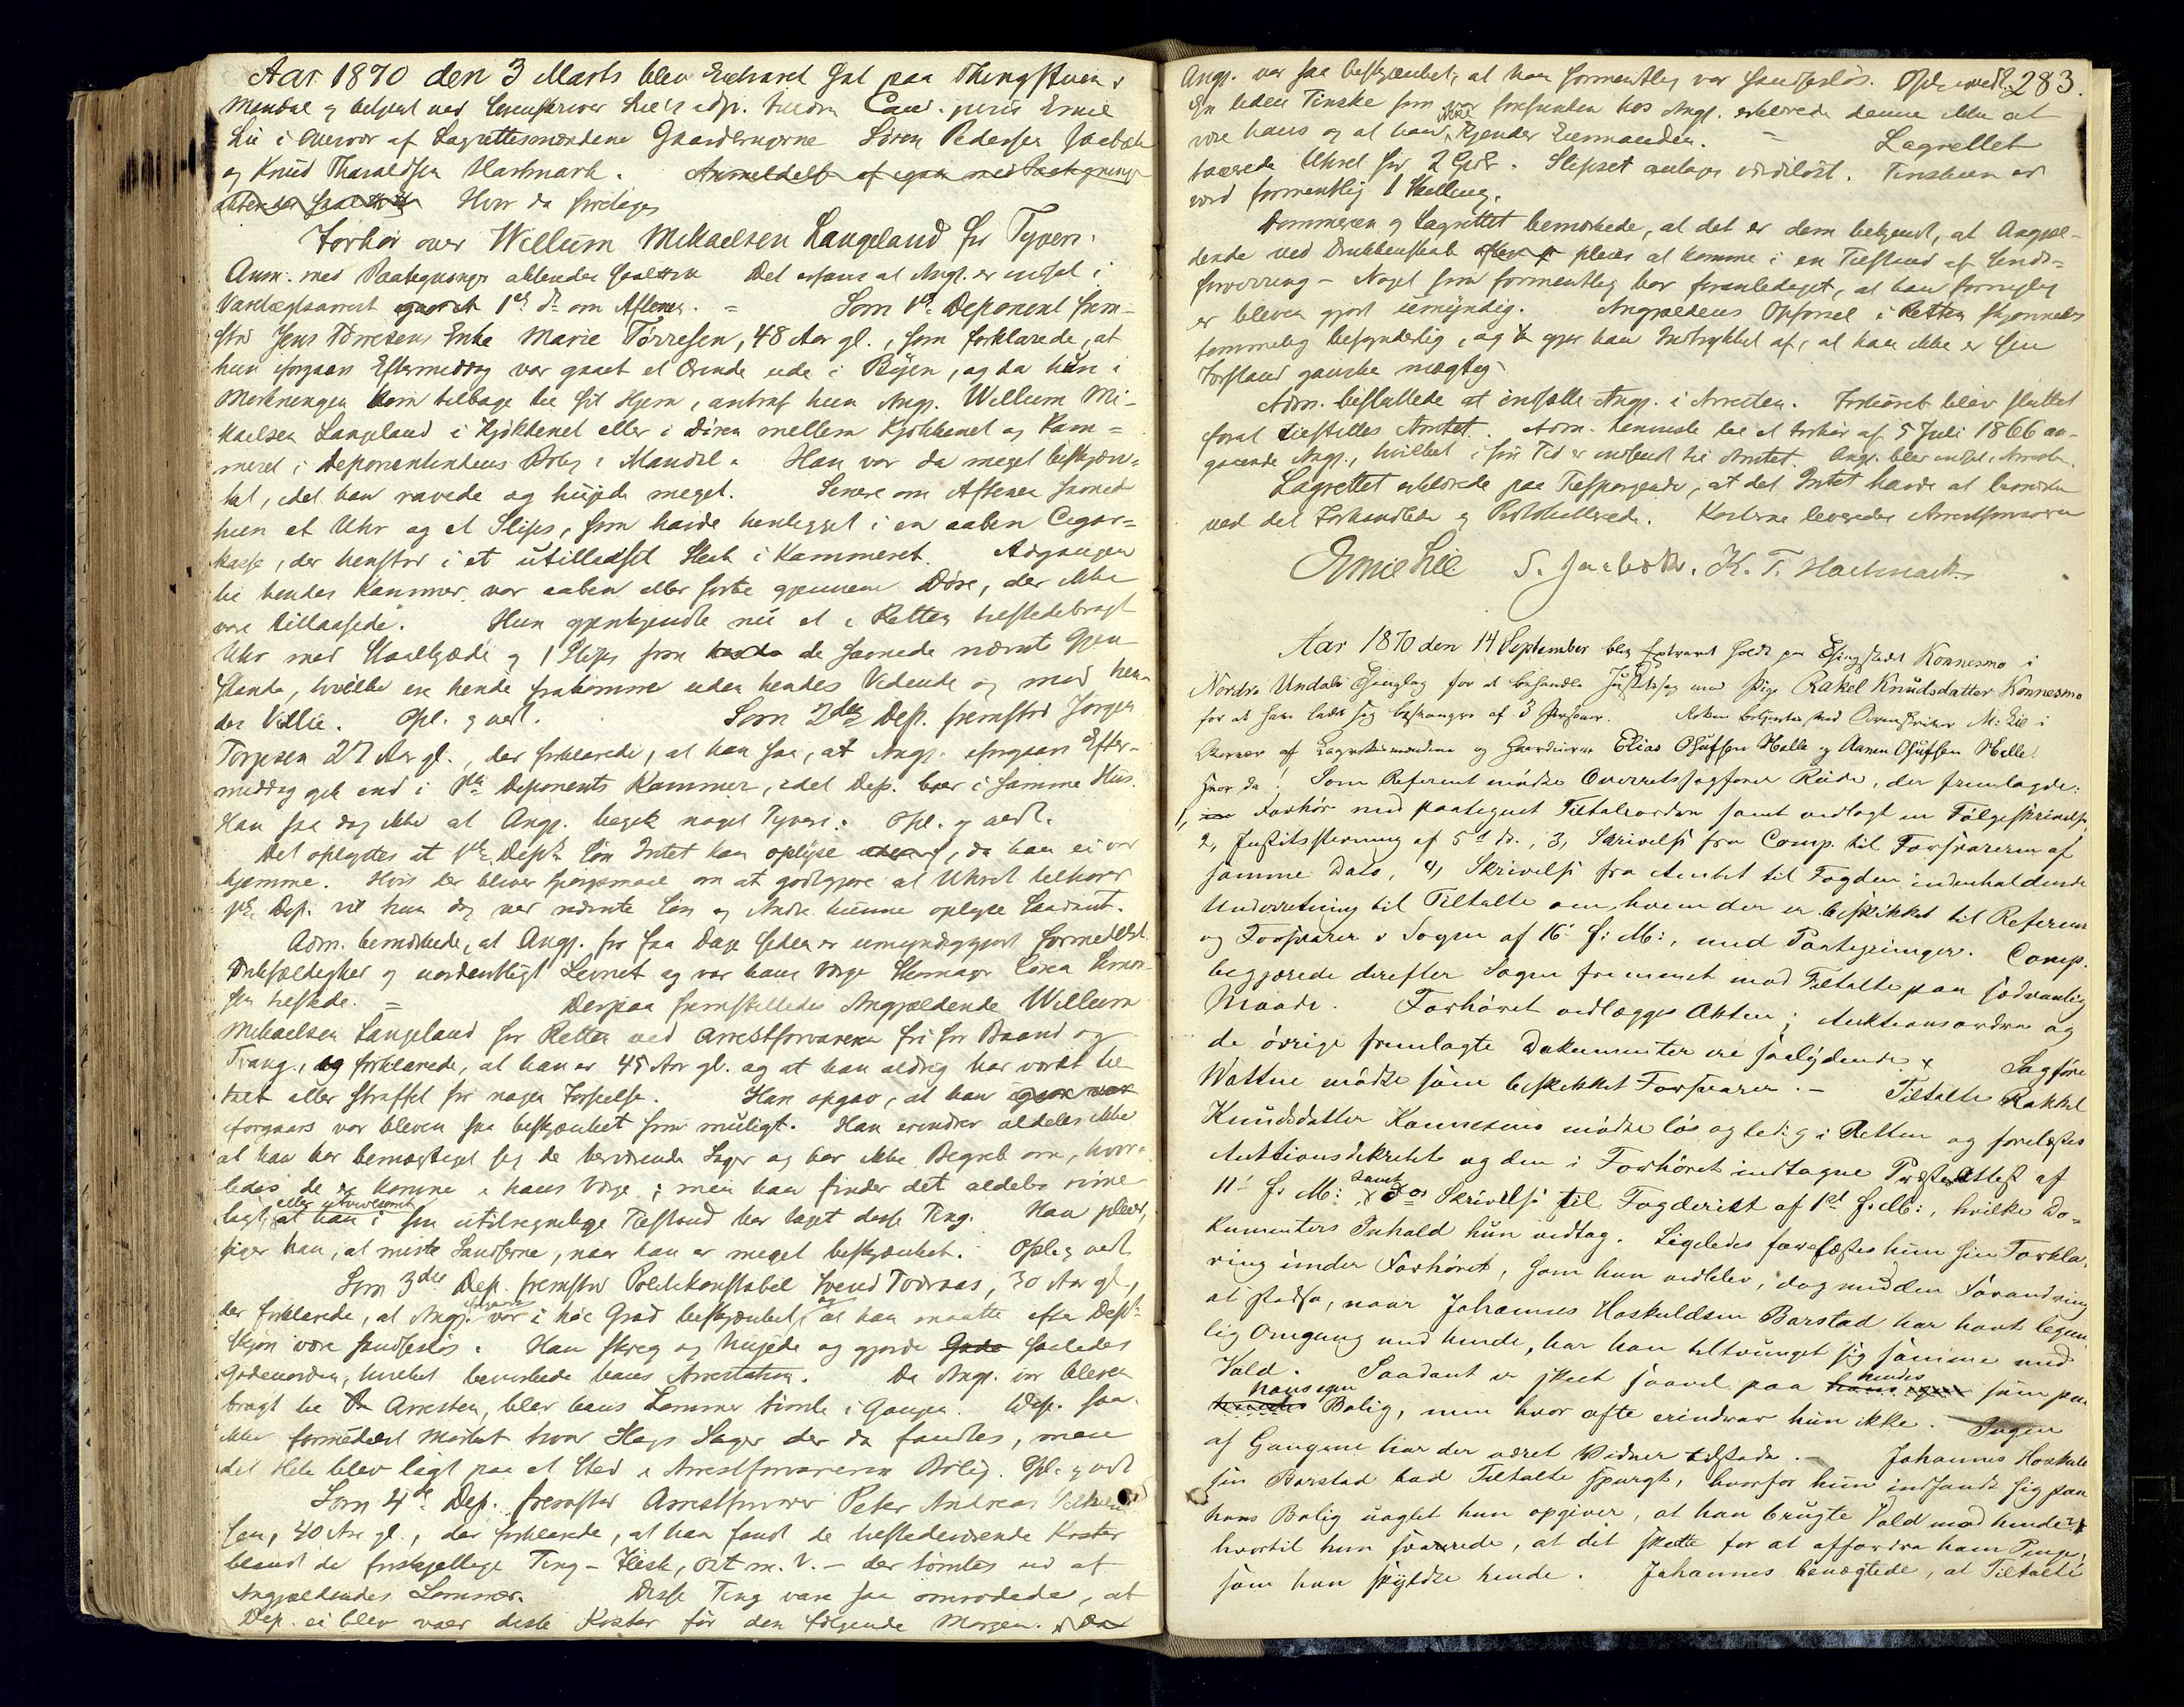 Aar 1870 den 3 Marts blev Extraret sat paa Thingstuen i
Mandal og betjent ved Sorenskriver Lie's edsv. Cand. juris Emil
Lie i Overvær af Lagrettesmændene Gaardbrugerne Sören Pedersen Jaabæk
og Knud Tharaldsen Hartmark. Anmeldelse af igaar med Paategninger
Hvor da foretages
Forhör over Willum Mikaelsen Langeland for Tyveri.
Anm. med Paategninger Det er indsat i
Varetægtsarrest igaar 1ste ds om Aftenen. = Som 1ste Deponent frem-
stod Jens Törresens Enke Marie Törresen, 48 Aar gl., som forklarede, at
hun iforgaars Eftermiddag var gaaet et Ærinde ude i Byen, og da hun i
Mørkningen kom tilbage til sit Hjem, antraf hun Angj. Willum Mi-
kaelsen Langeland i Kjökkenet eller i Dören mellem Kjökkenet og Kam=
meret i Deponentindens Bolig i Mandal. Han var da meget beskjæn-
ket, idet han ravede og hujede meget. Senere om Aftenen savnede
hun et Uhr og et Slips, som havde henligget i en aaben Cigar=
kasse, der henstod i et utillaaset Skab i Kammeret. Adgangen
til hendes Kammer var aaben eller förte gjennem Döre, der ikke
vare tillaasede. Hun gjenkjendte nu et i Retten tilstedebragt
Uhr med Staalkjæde og 1 Slips som de savnede nævnte Gjen-
stande, hvilke ere hende frakomne uden hendes Vidende og mod hen-
des Villie. Opl. og vedt. Som 2den Dep. fremstod Jörgen
Torjesen 27 Aar gl., der forklarede, at han saa, at Angj. iforgaars Efter-
middag gik ind i 1ste Deponents Kammer, idet Dep. boer i samme Hus.
Han saa dog ikke at Angj. begik noget Tyveri. Opl. og vedt.
Det oplystes at 1ste Dep's Sön Intet kan oplyse , da han ei var
hjemme. Hvis der bliver Spörgsmaal om at godtgjöre at Uhret tilhörer
1ste Dep. vil hun dog ved nævnte Sön og Andre kunne oplyse Saadant.
Adm. bemærkede, at Angj. for faa Dage siden er umyndiggjort formedelst
Drikfældighed og uordentligt Levnet og var hans Værge
sen tilstede. = Derpaa fremstilledes Angjældende Willum
Mikaelsen Langeland for Retten ved Arrestforvareren fri for Baand og
Tvang, og forklarede, at han er 45 Aar gl. og at han aldrig har været til-
talt eller straffet for nogen Forseelse. Han opgav, at han
iforgaars var bleven saa beskjænket som muligt. Han erindrer aldeles ikke
at han har bemægtiget sig de herværende Sager og har ikke Begreb om, hvor-
ledes de er komne i hans Værge; men han finder det aldeles rime-
eller utvivlsomt
ligt, at han i sin utilregnelige Tilstand har taget disse Ting. Han pleier,
siger han, at miste Sandserne, naar han er meget beskjænket. Opl. og vedt.
Som 3die Dep. fremstod Politikonstabel Svend Todnæs, 30 Aar gl.,
der forklarede, at Angj. var i höi Grad beskjænket, og at han maatte efter Dep's
Skjön være sandseslös. Han skreg og hujede og gjorde saaledes
Gadeuorden, hvilket bevirkede hans Arrestation. Da Angj. var bleven
bragt til Arresten, blev hans Lommer tömte i Gangen. Dep. saa
ikke formedelst Mörket hvad Slags Sager der da fandtes, men
det Hele blev lagt paa et Sted i Arrestforvarerens Bolig. Opl. og vedt
Som 4de Dep. fremstod Arrestforvarer Peter Andreas
sen, 40 Aar gl., der forklarede, at han fandt de tilstedeværende Koster
blandt de forskjellige Ting – Flesk, Ost m. V. – der tömtes ud af
Angjældendes Lommer. Disse Ting vare saa omrodede, at
Dep. ei blev vaer disse Koster för den fölgende Morgen. Da
283.
Angj. var saa beskjænket, at han formentlig var sandseslös. Opl. og vedt.
En liden Tinske som var forefunden hos Angj. erklærede denne ikke at
være hans og at han ikke kjender Eiermanden. – Lagrettet
taxerede Uhret for 2 Spdr. Slipset antages værdilöst. Tinsken er
værd formentlig 1 Skilling.
Dommeren og Lagrettet bemærkede, at det er dem bekjendt, at Angjæl-
dende ved Drukkenskab pleier at komme i en Tilstand af Sinds=
forvirring – Noget som formentlig har foranlediget, at han fornylig
er bleven gjort umyndig. Angjældendes Opförsel i Retten skjönnedes
temmelig besynderlig, og gjör han Indtrykket af, at han ikke er sin
Forstand ganske mægtig.
Adm. besluttede at indsætte Angj. i Arresten. Forhöret blev sluttet
forat tilstilles Amtet. Adm. henviste til et Forhör af 5 Juli 1866 an-
gaaende Angj., hvilket i sin Tid er indsendt til Amtet. Angj. blev indsat i Arresten.
Lagrettet erklærede paa Tilspörgende, at det Intet havde at bemærke
ved det Forhandlede og Protokollerede. Kosterne leveredes Arrestforvareren
Emil Lie S. Jaabæk. K. T. Hartmark
Aar 1870 den 14 September blev Extraret holdt paa Thingstedet Konnesmo i
Nordre Undals Thinglag for at behandle Justitssag mod Pige Rakel Knudsdatter Konnesmo
for at have ladet sig besvangre af 3 Personer. Retten betjentes ved Sorenskriver M. Lie i
Overvær af Lagrettesmændene og Gaardeierne Elias Olufsen Halle og Aanen Olufsen Helle.
Hvor da! Som Referent mödte Overretssagförer Röde, der fremlagde:
1, Forhör med paategnet Tiltaleordre samt vedlagt en Fölgeskrivelse,
2, Justitsstevning af 5te ds., 3, Skrivelse fra Comp. til Forsvareren af
samme Dato, 4, Skrivelse fra Amtet til Fogden indeholdende
Underretning til Tiltalte om, hvem der er beskikket til Referent
og Forsvarer i Sagen af 16. f: M:, med Paategninger. Comp.
begjærede derefter Sagen fremmet mod Tiltalte paa sædvanlig
Maade. Forhöret vedlægges Akten; Auktionsordren og
de övrige fremlagte Dokumenter ere saalydende. Sagförer
Wattne mödte som beskikket Forsvarer. – Tiltalte Rakkel
Knudsdatter Konnesmo mödte lös og ledig i Retten og forelæstes
Aktionsdekretet og den i Forhöret indtagne Præsteattest af
11. f: M: samt Skrivelse til Fogderiet af 1ste f: M:, hvilke Do=
kumenters Inhold hun vedtog. Ligeledes forelæstes hun sin Forkla-
ring under Forhöret, som hun vedblev, dog med den Forandring
at Johannes Hoskuldsen Barstad har havt legem-
lig Omgang med hende, har han tiltvunget sig samme med
Vold. Saadant er skeet saavel paa hendes som paa
hans egen Bolig, men hvor ofte erindrer hun ikke. Ingen
af Gangene har der været Vidner tilstede. – Johannes Hoskuld-
sen Barstad bad Tiltalte spurgt, hvorfor hun indfandt sig paa
hans Bolig uagtet hun opgiver, at han brugte Vold mod hende?
hvortil hun svarede, at det skete for at affordre ham Penge,
som han skyldte hende. Johannes benægtede, at Tiltalte